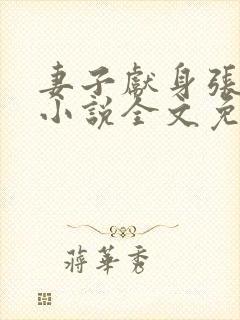 妻子獻身張
小說全文免
蔣華秀